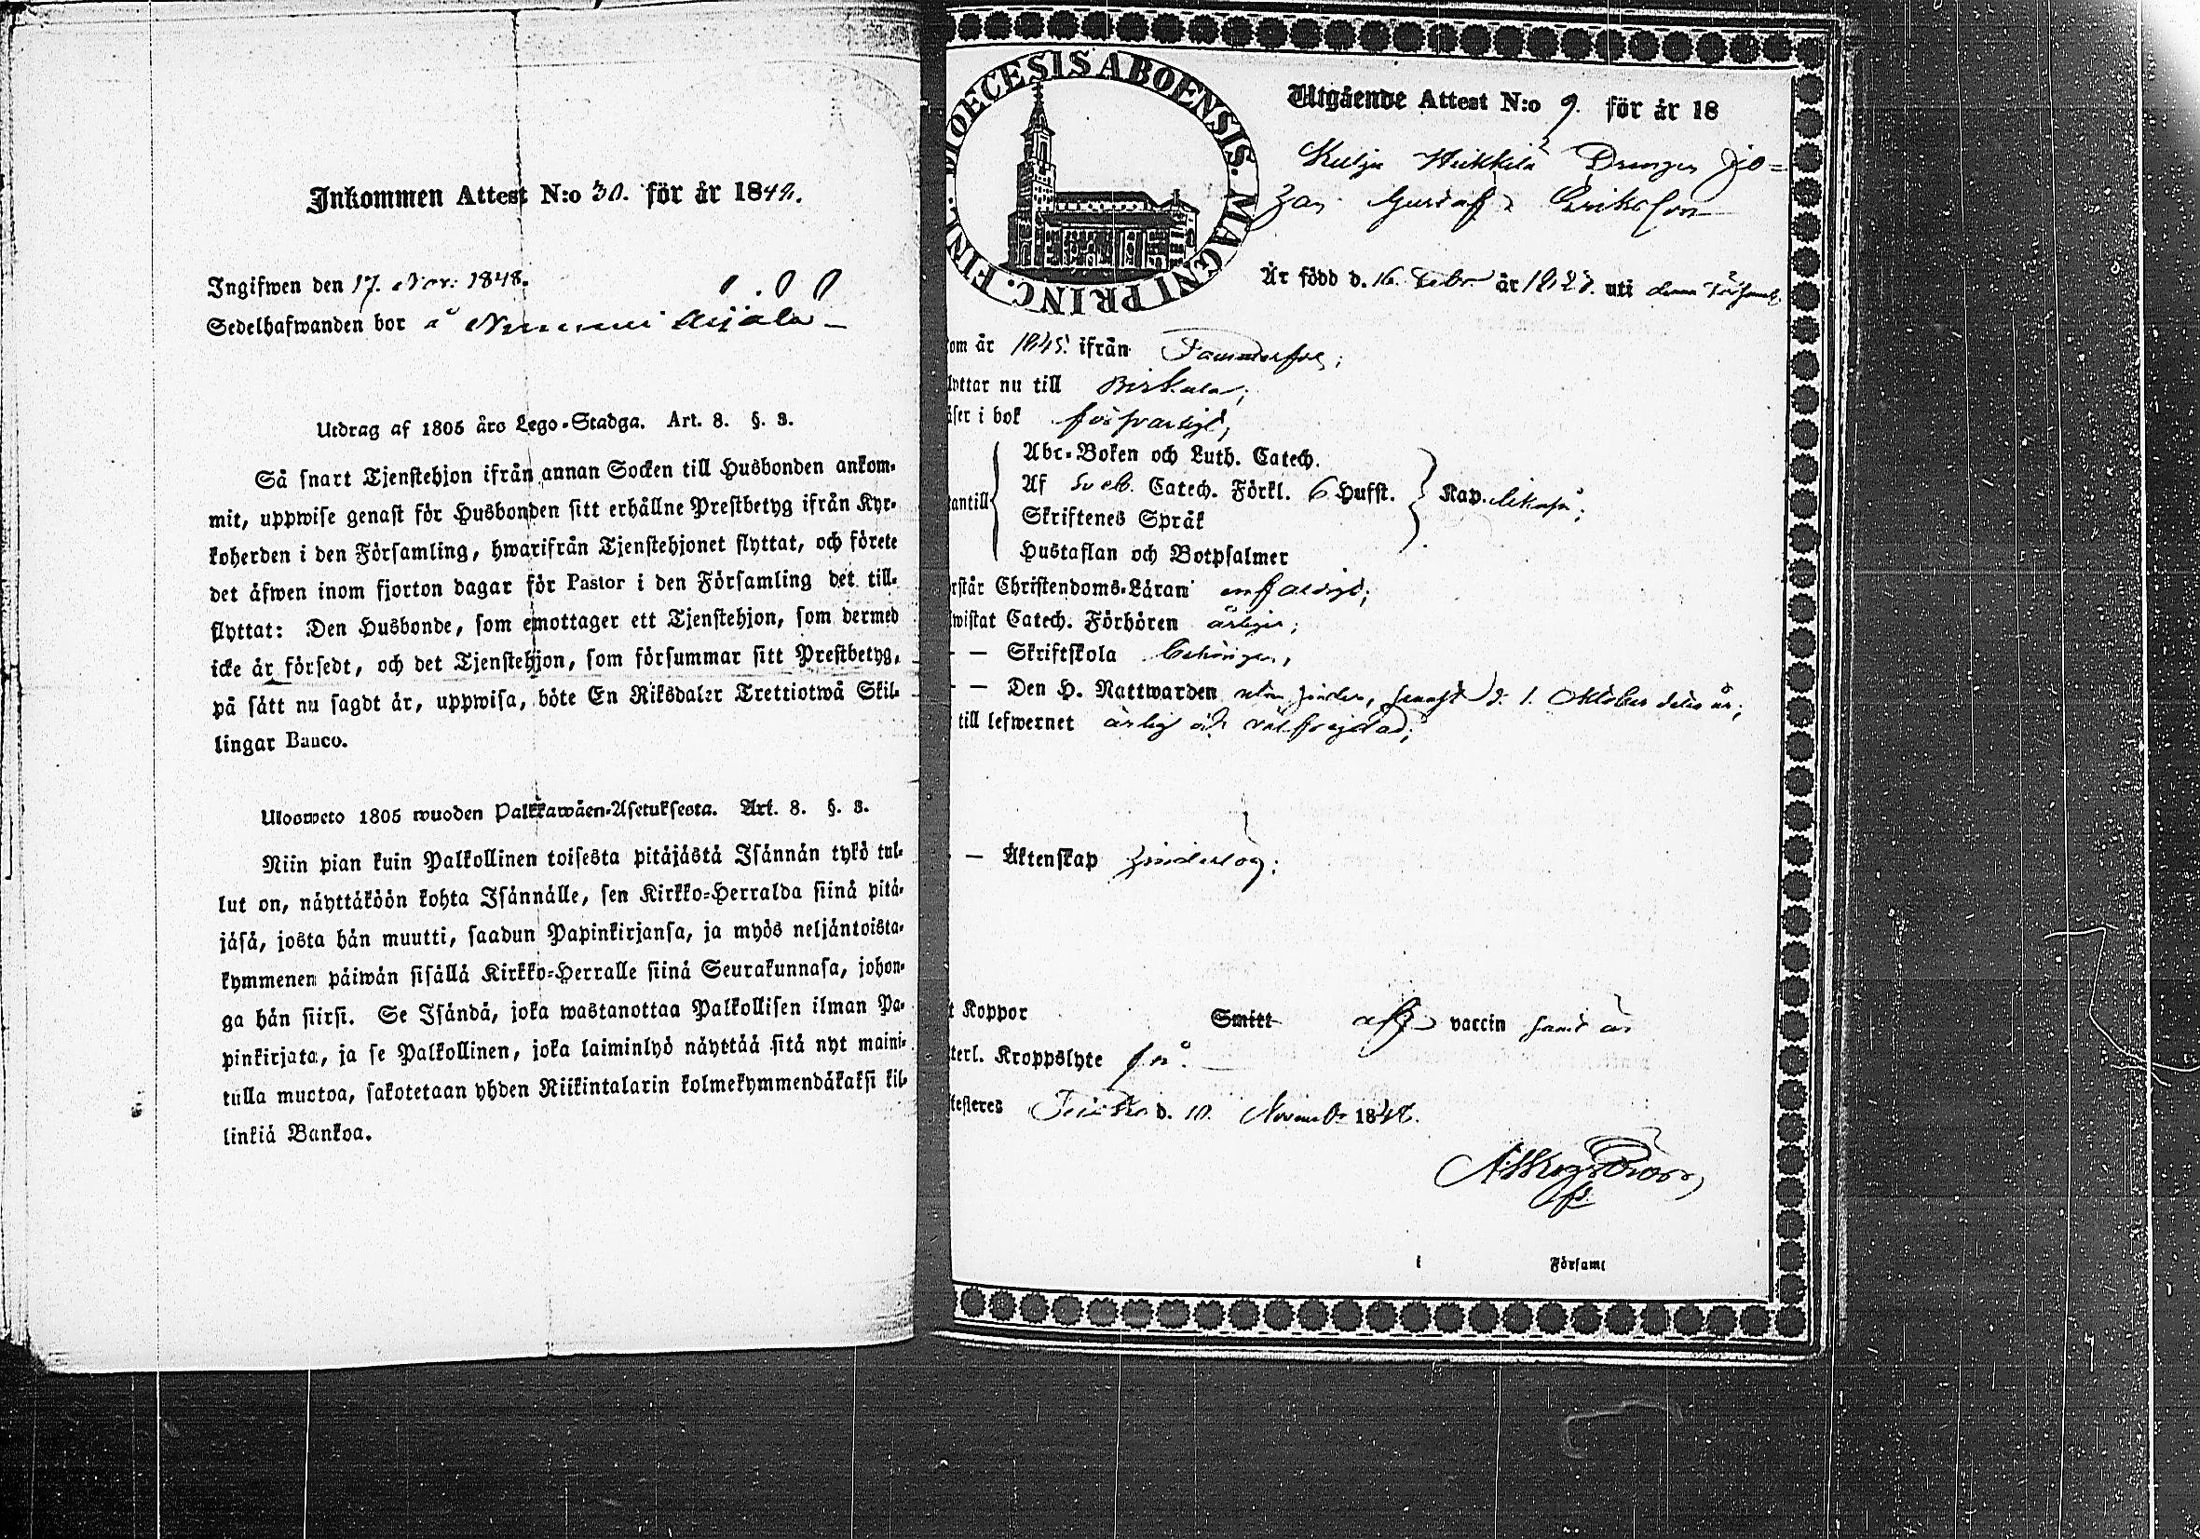 Inkommen Attest N:o 30. för år 1848.
Ingifwen den 17. Nov. 1848.
Sedelhafwanden bor å
Utdrag af 1805 års Lego-Stadga. Art. 8. §. 3.
Så snart Tjenstehjon ifrån annan Socken till Husbonden ankom-
mit, uppwise genast för Husbonden sitt erhållne Prestbetyg ifrån Kyr-
koherden i den Församling, hwarifrån Tjenstehjonet flyttat, och förete
det äfwen inom fjorton dagar för Pastor i den Församling det till-
flyttat: Den Husbonde, som emottager ett Tjenstehjon, som dermed
icke är försedt, och det Tjenstehjon, som försummar sitt Prestbetyg,
på sätt nu sagdt är, uppwisa, böte En Riksdaler Trettiotwå Skil-
lingar Banco.
Uloswето 1805 wuoden Palkkawäen-Asetuksesta. Art. 8. §. 3.
Niin pian kuin Palkollinen toisesta pitäjästä Isännän tykö tul-
lut on, näyttäköön kohta Isännälle, sen Kirkko-Herralda siinä pitä-
jäsä, josta hän muutti, saadun Papinkirjansa, ja myös neljäntoista-
kymmenen päiwän sisällä Kirkko-Herralle siinä Seurakunnasa, johon-
ga hän siirsi. Se Isändä, joka wastanottaa Palkollisen ilman Pa-
pinkirjata, ja se Palkollinen, joka laiminlyö näyttää sitä nyt maini-
tulla muotoa, sakotetaan yhden Riikintalarin kolmekymmendäkaksi kil-
linkiä Bankoa.
DIOECESIS ABOENSIS. MAGNI PRINC. FINL.
Utgående Attest N:o 9. för år 18
Heikkilä Drengen Jo=
han Gustaf Eriksson
Är född d. 16. Febr. år uti denna Församl.
om år 1845. ifrån
lyttar nu till Birkala;
äser i bok försvarligt,
antill
Abc-Boken och Luth. Catech.
Af Sveb. Catech. Förkl. 6 Hufst.
Skriftenes Språk
Hustaflan och Botpsalmer
Kap. likaså;
rstår Christendoms-Läran enfaldigt;
wistat Catech. Förhören årligen;
– – Skriftskola behörigen,
– – Den H. Nattwarden utan hinder, senast d. 1. Oktober detta år;
till lefwernet ärlig och välfrejdad;
– – Äktenskap hinderlös;
t Koppor Smitt af vaccin samt är
terl. Kroppslyte fri.
testeres Teisko d. 10. November 1848.
i Församl